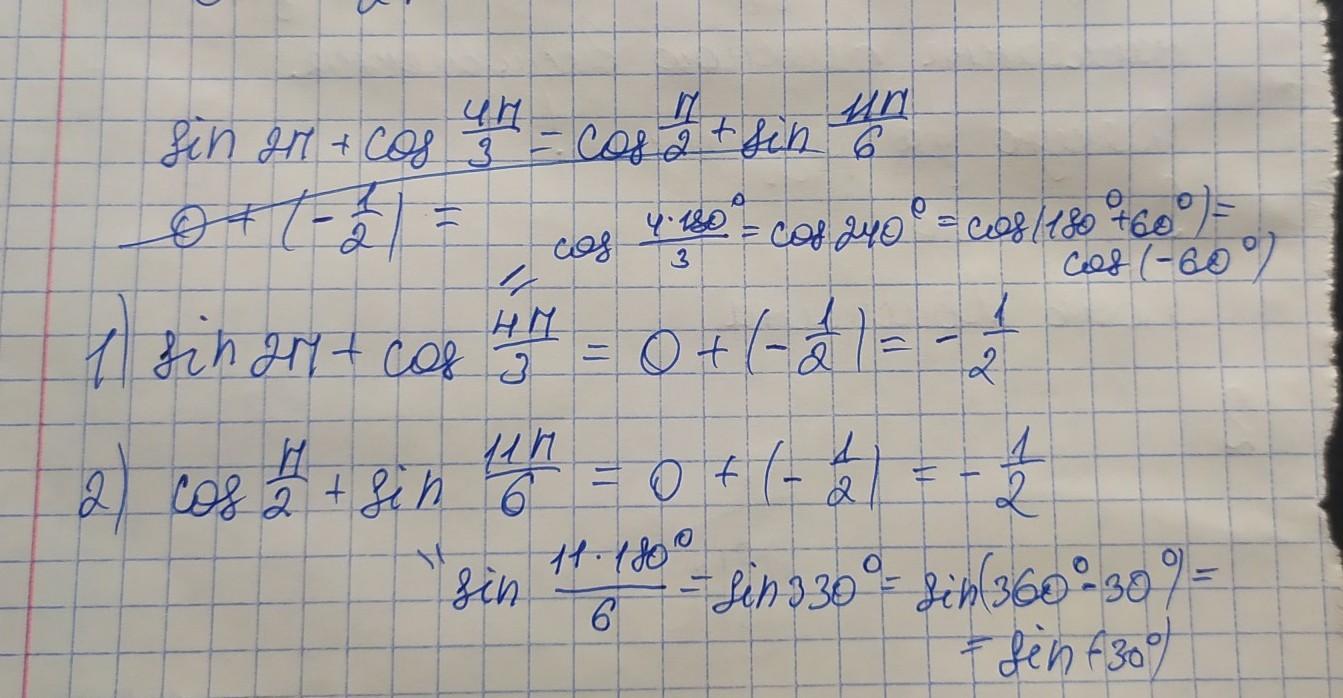 sin 2π + cos 4π/3 = cos π/2 + sin 11π/6
0 + (-1/2) =
cos 4·180°/3 = cos 240° = cos(180°+60°) =
cos(-60°)
1) sin 2π + cos 4π/3 = 0 + (-1/2) = -1/2
2) cos π/2 + sin 11π/6 = 0 + (-1/2) = -1/2
sin 11·180°/6 = sin 330° = sin(360°-30°) =
= sin(-30°)